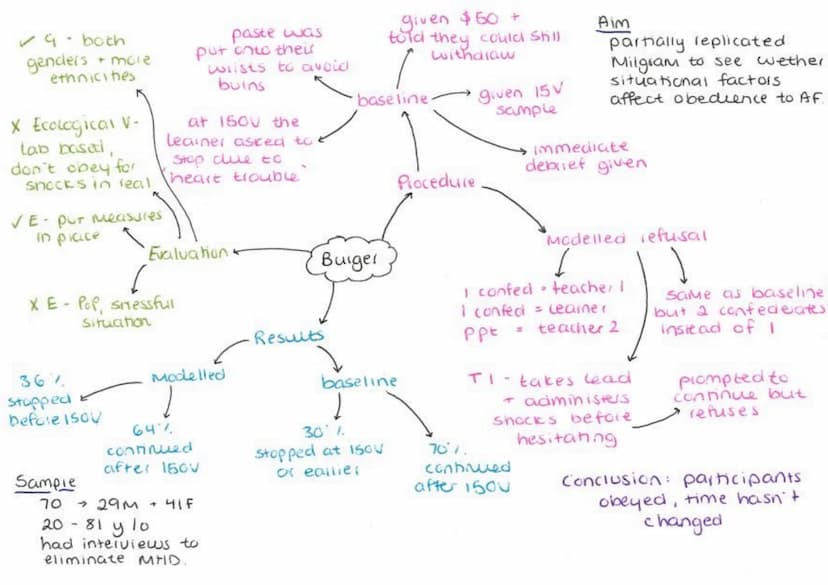 Aim
partially replicated
Milgram to see wether
situational factors
affect obedience to AF.
Burger
Procedure
baseline
given $50 +
told they could still
withdraw
given 15V
sample
immediate
debrief given
paste was
put onto their
wrists to avoid
burns
at 150V the
learner asked to
'stop due to
heart trouble'
Modelled refusal
1 confed = teacher 1
1 confed = learner
ppt = teacher 2
same as baseline
but 2 confederates
instead of 1
T1 - takes lead
+ administers
shocks before
hesitating
prompted to
continue but
refuses
Evaluation
✓ G - both
genders + more
ethnicities
X Ecological V-
lab based,
don't obey for
shocks in real
✓ E - put measures
in place
X E - PoP, stressful
situation
Results
Modelled
36%
stopped
before 150V
64%
continued
after 150V
baseline
30%
stopped at 150V
or earlier
70%
continued
after 150V
Sample
70 → 29M + 41F
20 - 81 y/o
had interviews to
eliminate MHD.
Conclusion: participants
obeyed, time hasn't
changed